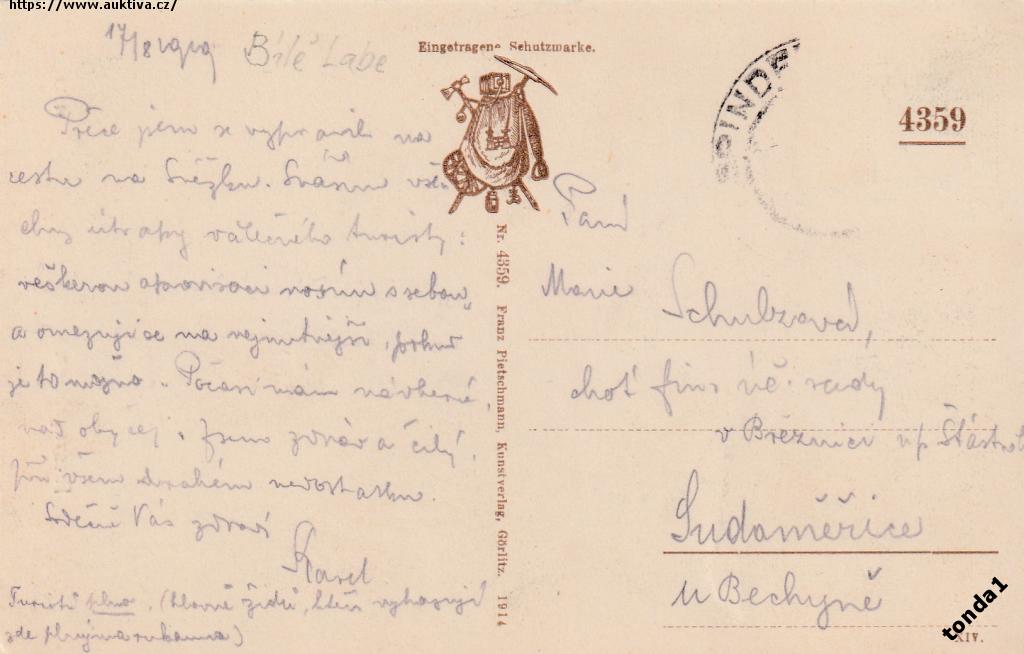 https://www.auktiva.cz/
17/8 1919 Bílé Labe
Eingetragene Schutzmarke.
SPINDE
4359
Přece jsem se vypravil na
cestu na Sněžku. Snáším vše-
chny útrapy válečného turisty:
veškerou aprovisaci nosím s sebou,
a omezuji se na nejnutnější, pokud
je to možno. Počasí mám nádherné,
nad obyčej. Jsem zdráv a čilý,
při všem drahém nedostatku.
Srdečně Vás zdraví
Karel
Turistů plno. (hlavně židů, kteří vyhazují
zde plnýma rukama)
Nr. 4359. Franz Pietschmann, Kunstverlag, Görlitz. 1914
Paní
Marie Schulzová,
choť fin. rady
v Březnici up.
Sudoměřice
u Bechyně
XIV.
tonda1